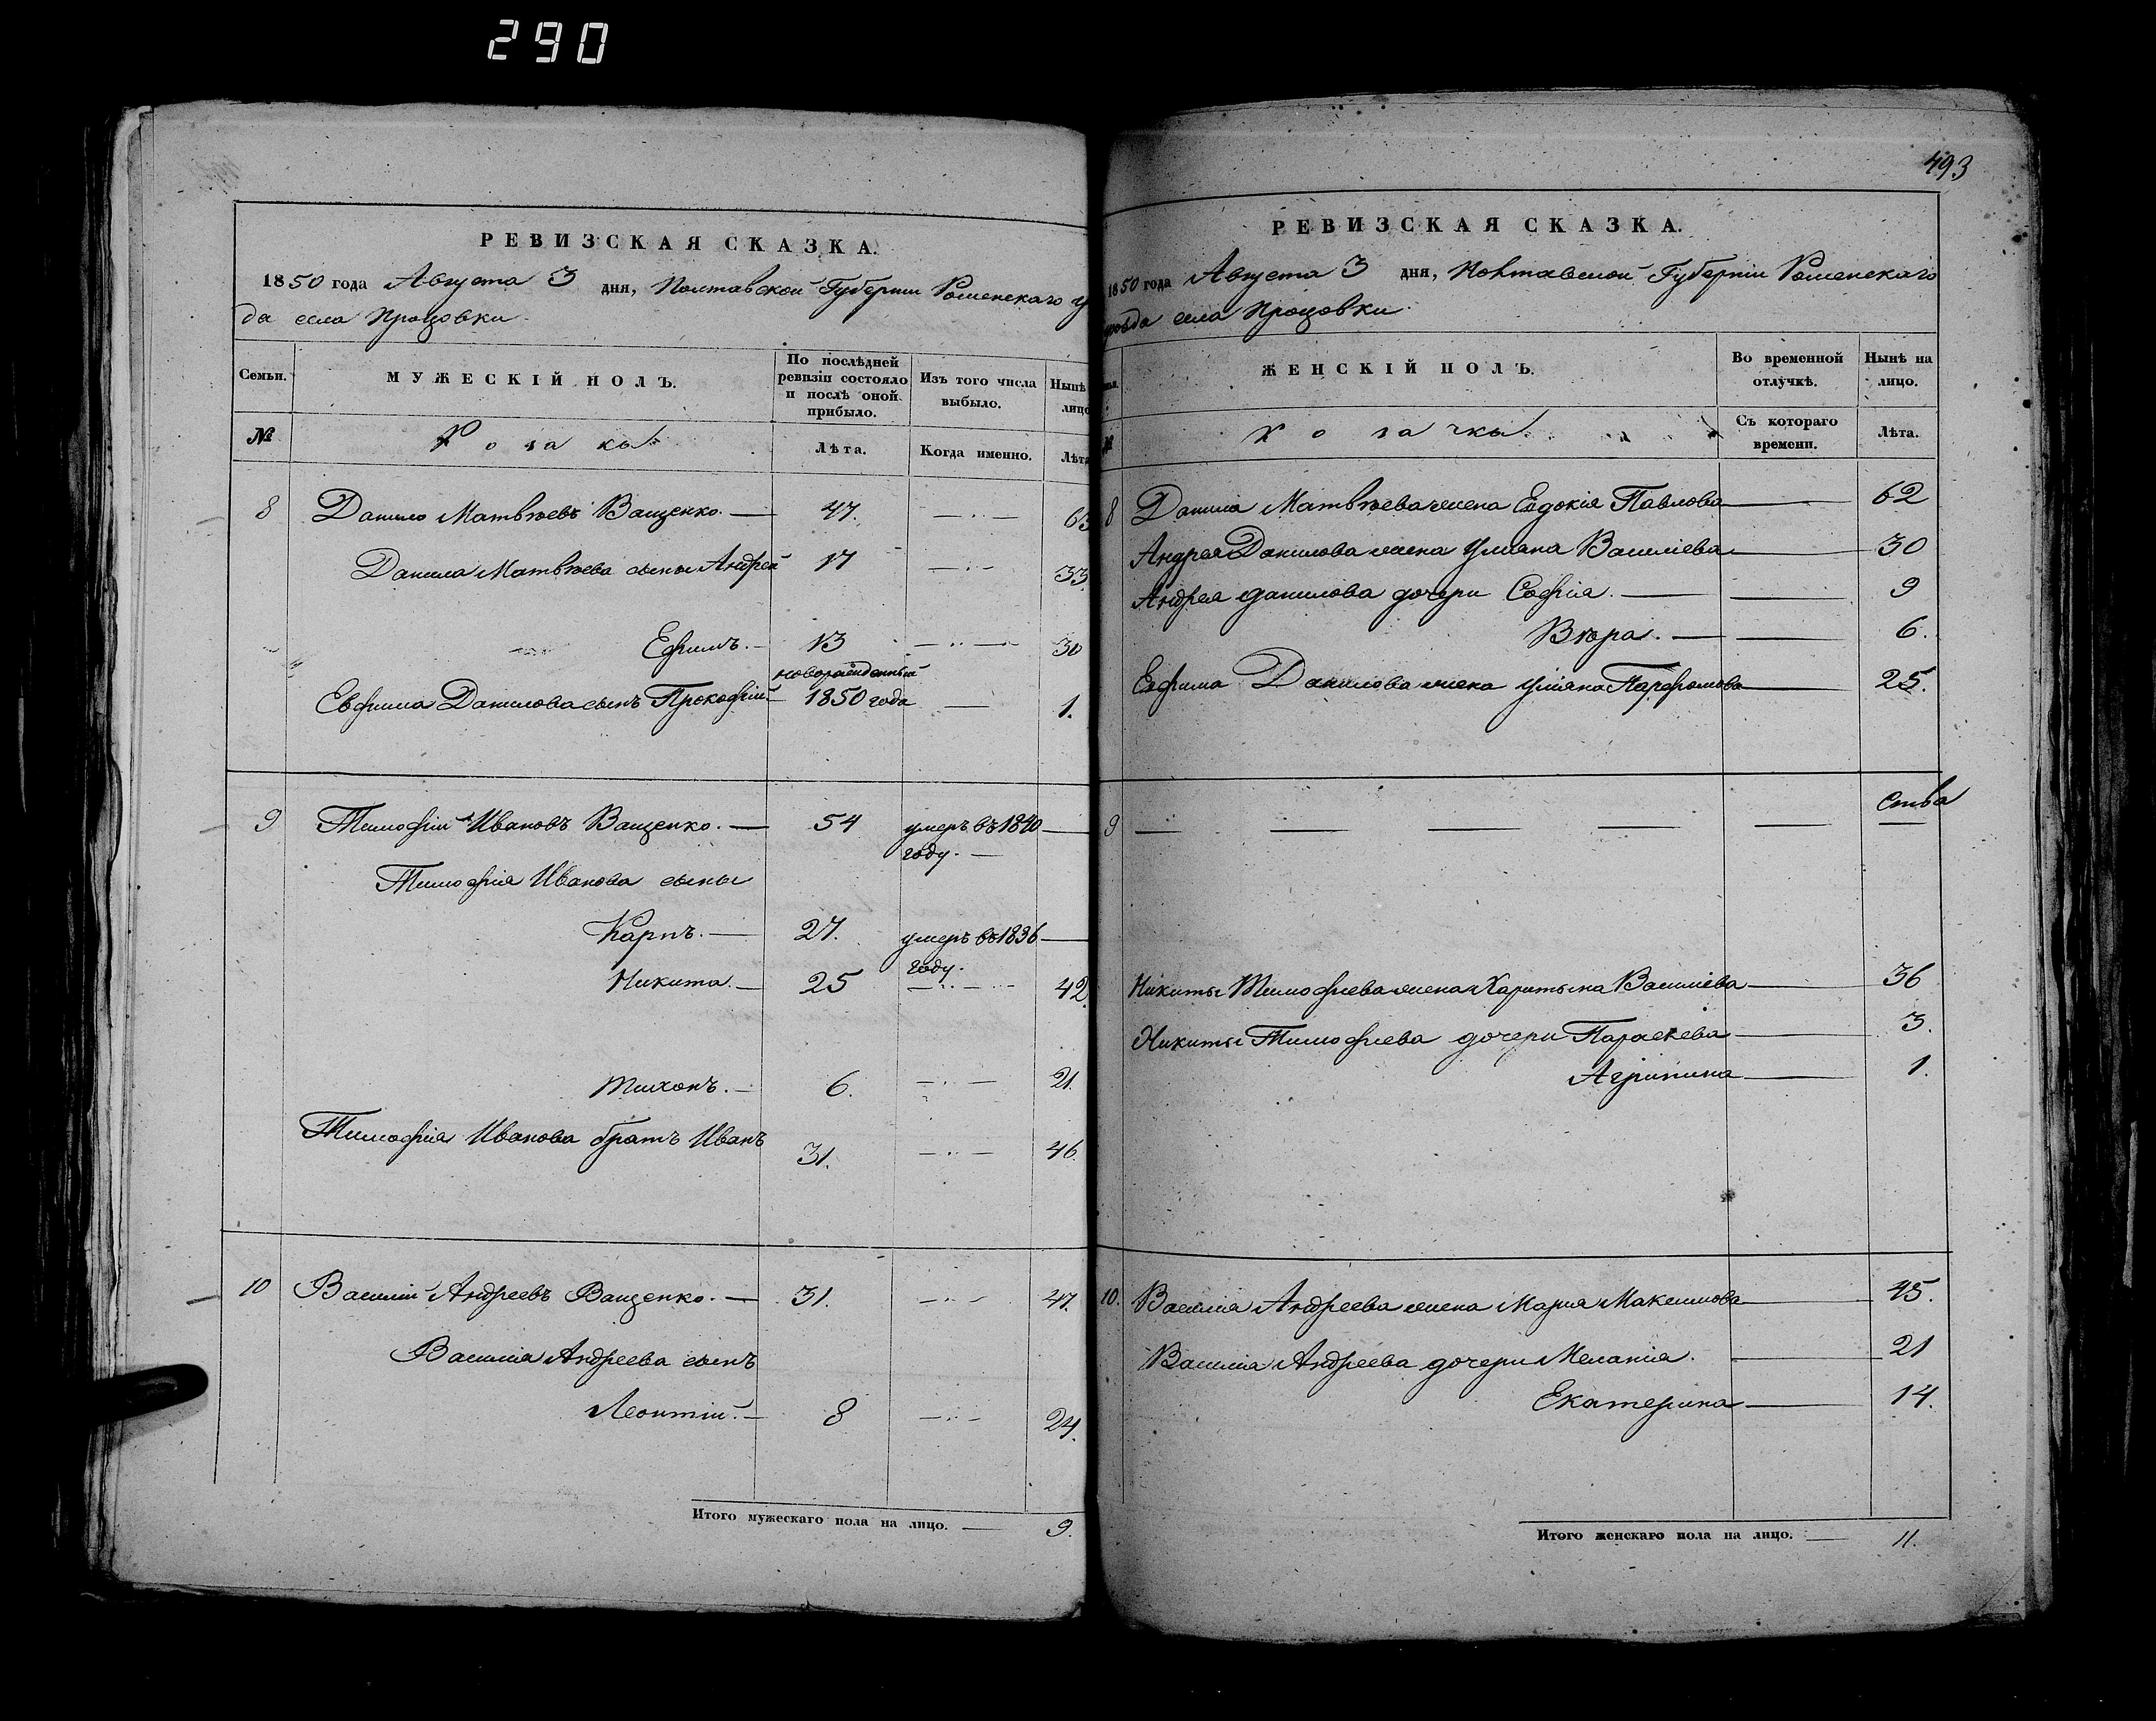 290
РЕВИЗСКАЯ СКАЗКА.
1850 года Августа 3 дня, Полтавской Губернии Роменскаго у
да села Процовки.
Семьи.
МУЖЕСКІЙ ПОЛЪ.
По послѣдней ревизіи состояло и послѣ оной прибыло.
Изъ того числа выбыло.
Нынѣ лицо
№
Козаки
Лѣта.
Когда именно.
Лѣта
8 Данило Матвѣевъ Ващенко. 47. 63
Данила Матвѣева сыны Андрей 17 33.
Ефимъ. 13 30
новорожденный
Евфима Данилова сынъ Прокофій 1850 года 1.
9 Тимофій Ивановъ Ващенко. 54 умеръ въ 1840
году.
Тимофія Иванова сыны
Карпъ. 27. умеръ въ 1836
году.
Никита. 25 42.
Тихонъ. 6. 21.
Тимофія Иванова братъ Иванъ 31. 46.
10 Василій Андреевъ Ващенко. 31. 47.
Василія Андреева сынъ
Леонтій. 8 24.
Итого мужескаго пола на лицо. 9.
493
РЕВИЗСКАЯ СКАЗКА.
1850 года Августа 3 дня, Полтавской Губерніи Роменскаго
уѣзда села Процовки.
ЖЕНСКІЙ ПОЛЪ.
Во временной отлучкѣ.
Нынѣ на лицо.
№
Козачки.
Съ котораго времени.
Лѣта.
8 Данила Матвѣева жена Евдокія Павлова 62
Андрея Данилова жена Уліана Василіева 30
Андрея Данилова дочери Софія. 9
Вѣра. 6.
Евфима Данилова жена Уліяна Парфомова 25.
9
Никиты Тимофиева жена Харитына Василіева 36
Никиты Тимофиева дочери Параскева 3.
Агрипина 1.
10. Василія Андреева жена Марія Максимова 45.
Василія Андреева дочери Меланія. 21
Екатерина 14.
Итого женскаго пола на лицо. 11.